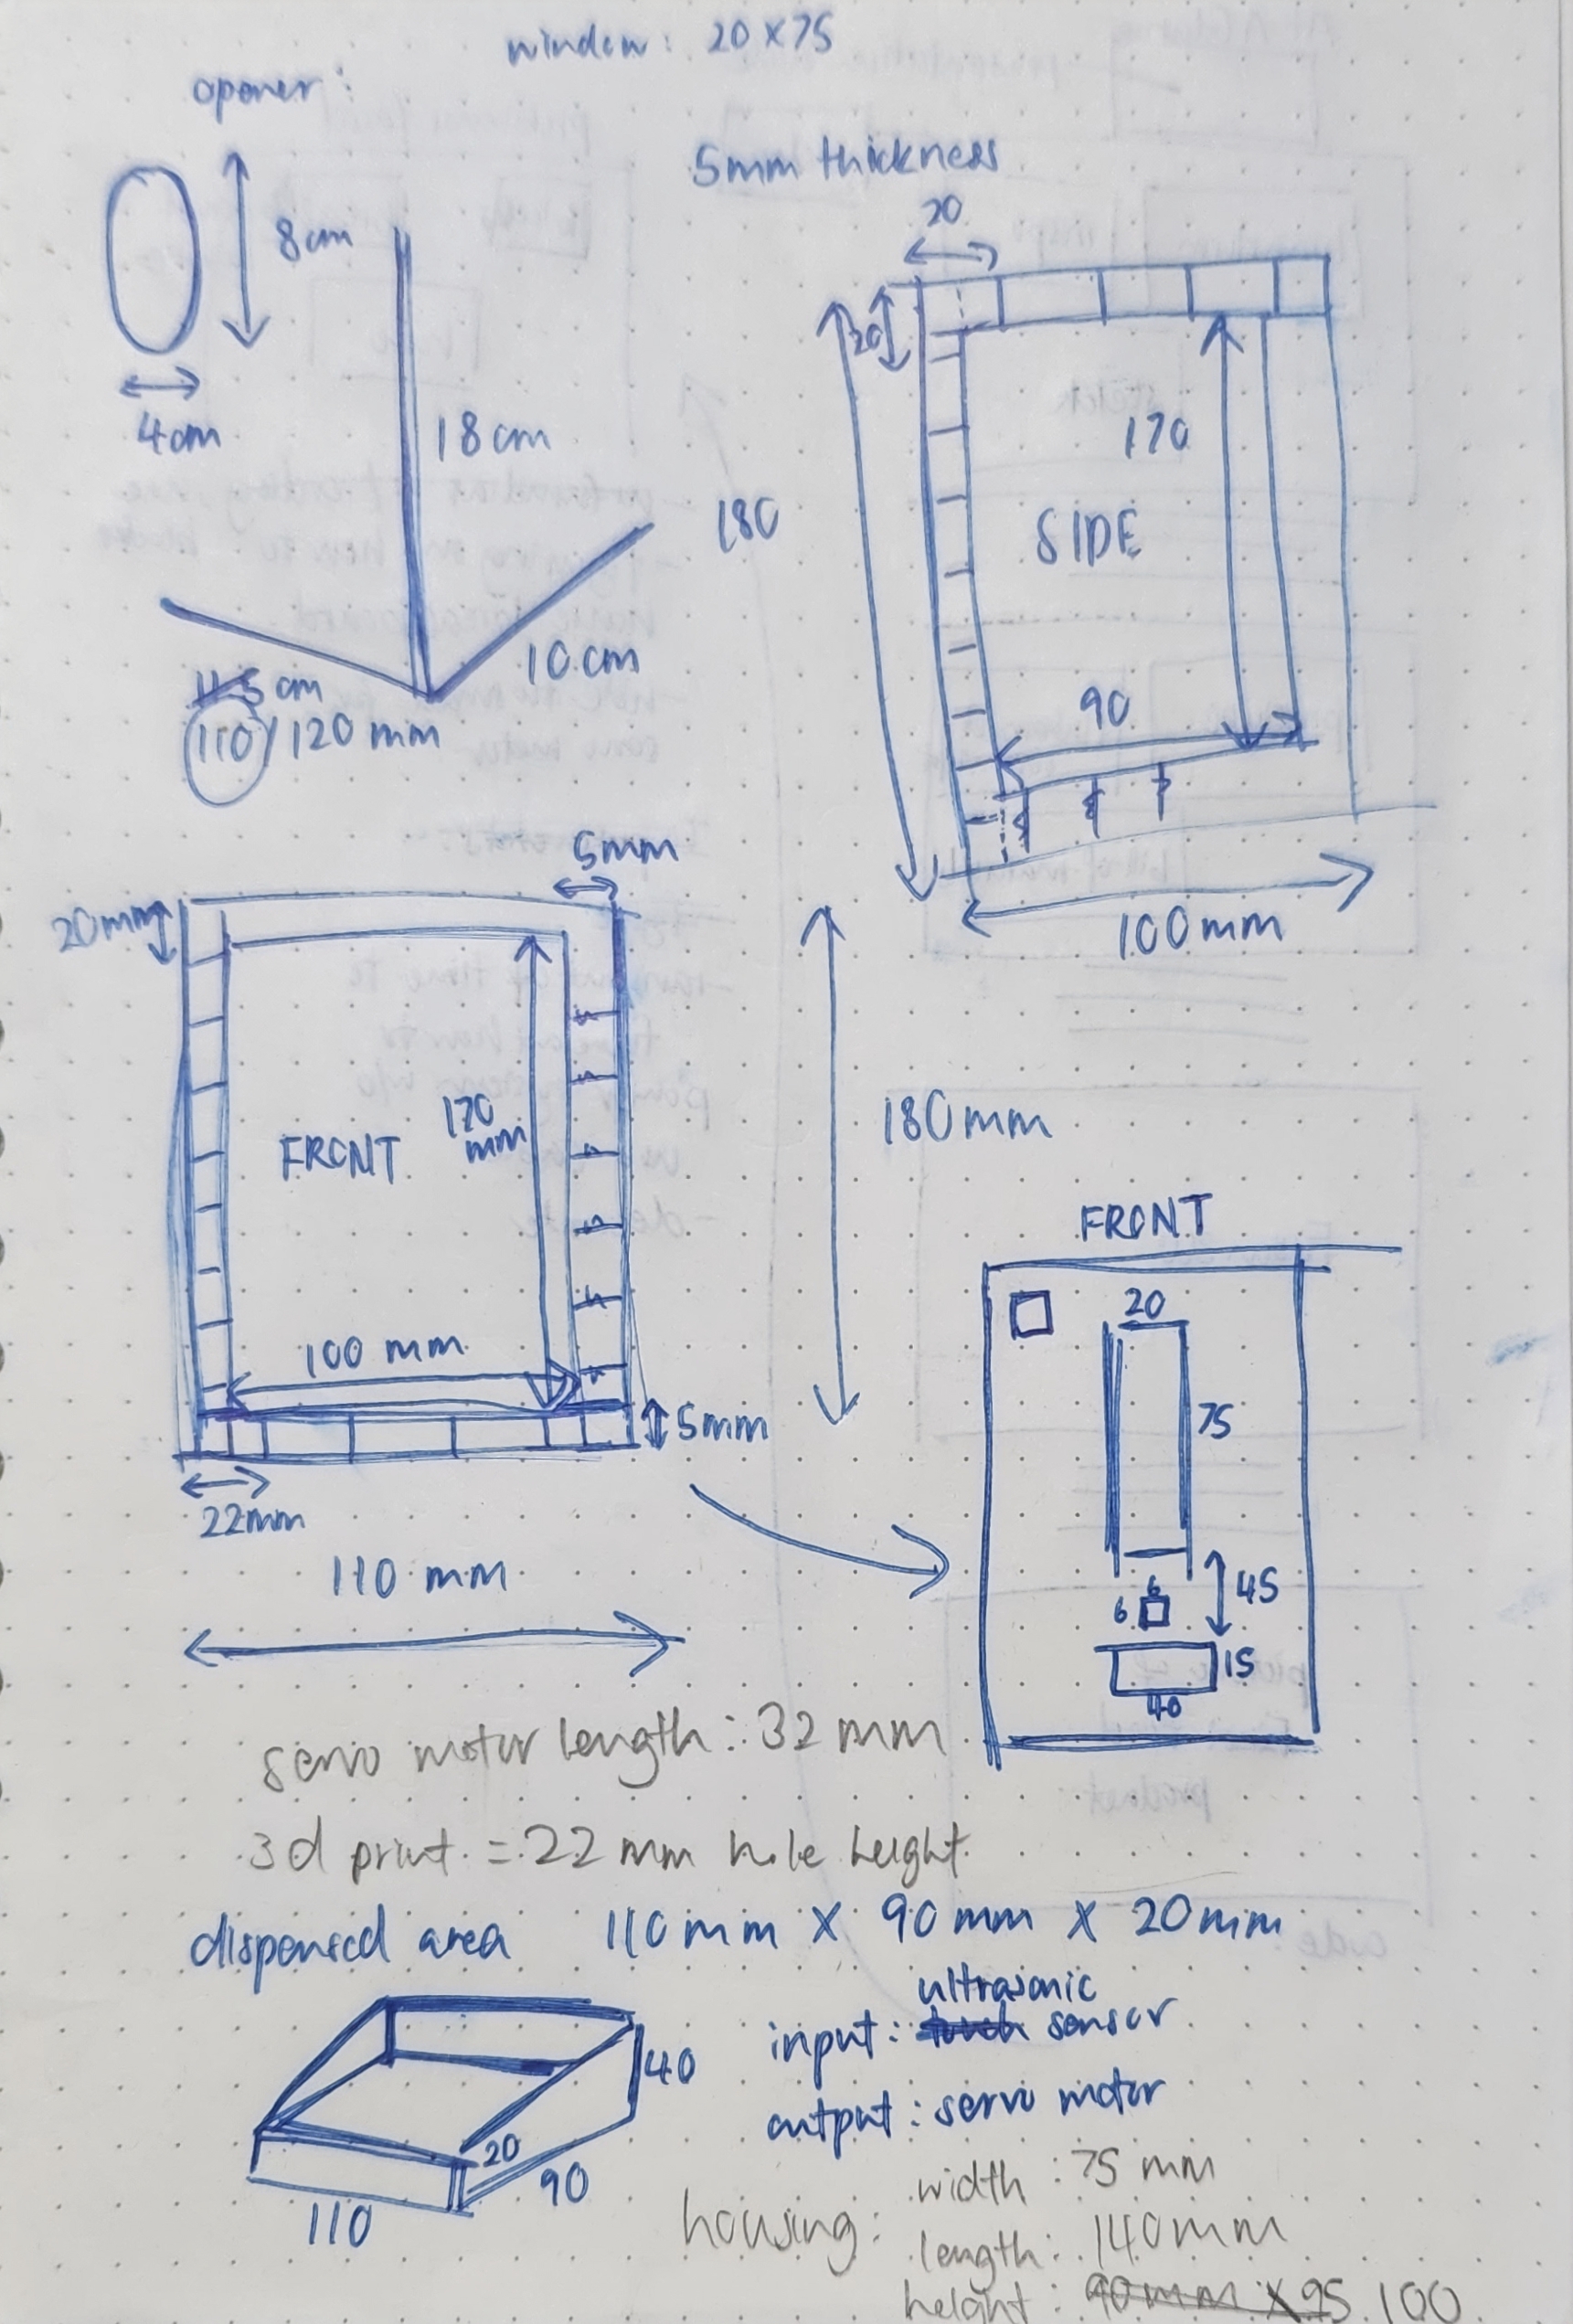 window: 20 x 75
opener:
8cm
4cm
18cm
10 cm
11.5 cm
110 / 120 mm
5mm thickness
20
20
180
170
SIDE
90
100mm
5mm
20mm
170 mm
FRONT
180mm
100 mm
5mm
22mm
110 mm
FRONT
20
75
45
6
6
15
40
servo motor length: 32 mm
3d print = 22 mm hole height
dispensed area 110mm X 90mm X 20mm
40
20
90
110
ultrasonic
input: touch sensor
output: servo motor
housing: width: 75 mm
length: 140mm
height: 90mm X 95 100